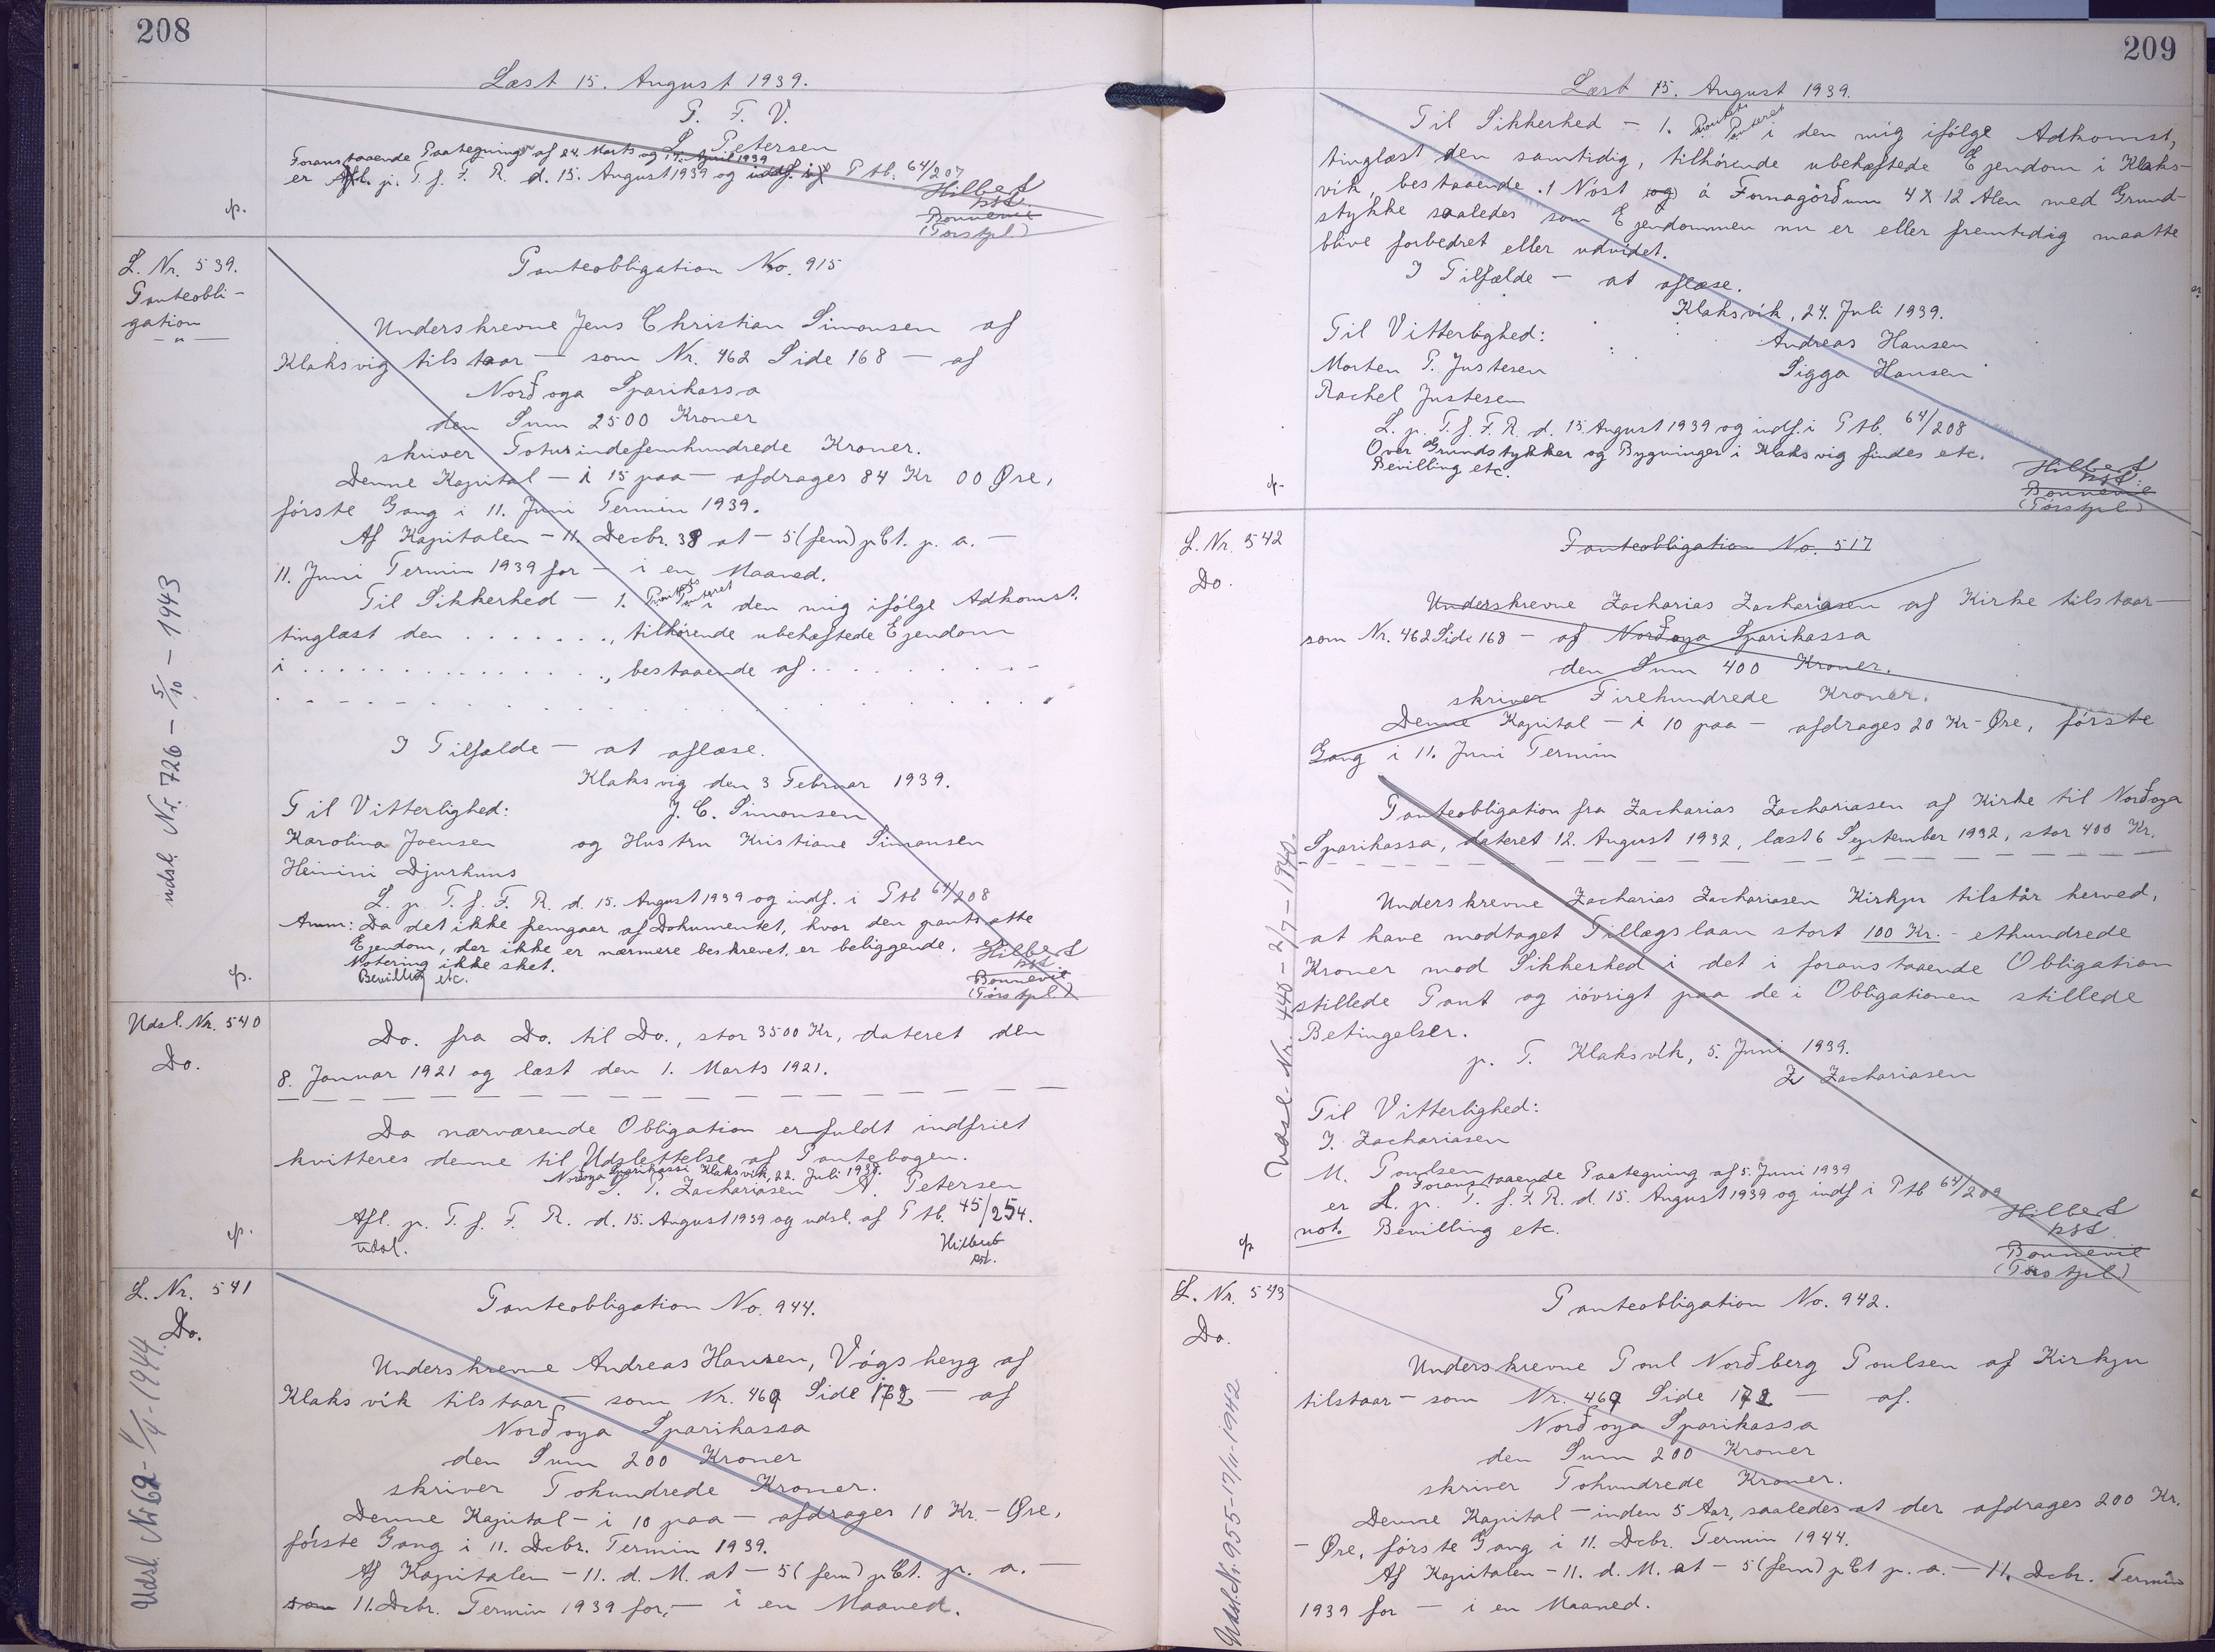 208
Læst 15. August 1939.
P. F. V.
S. Petersen
Foranstaaende Paategninger af 24. Marts og 14. April 1939
er Afl. p. T. f. F. R. d. 15. August 1939 og indf. i Ptb. 64/207
Hilbert
kst.
Bonnevie
(Torskpl.)
cp.
L. Nr. 539.
Panteobli-
gation
- " -
Panteobligation No. 915
Underskrevne Jens Christian Simonsen af
Klaksvig tilstaar — som Nr. 462 Side 168 — af
Norðoya Sparikassa
den Sum 2500 Kroner
skriver Toturindefemhundrede Kroner.
Denne Kapital — i 15 paa — afdrages 84 Kr 00 Øre,
første Gang i 11. Juni Termin 1939.
Af Kapitalen - 11. Decbr. 38 at - 5 (fem) pCt. p. a. —
11. Juni Termin 1939 for — i en Maaned.
Til Sikkerhed — 1. Prioritets Panteret i den mig ifölge Adkomst,
tinglæst den . . . . . . ., tilhørende ubehæftede Ejendom
i . . . . . . . . . . . . . ., bestaaende af . . . . . . . . .
I Tilfælde — at aflæse.
Klaksvig den 3 Februar 1939.
Til Vitterlighed: J. C. Simonsen
Karolina Joensen og Hustru Kristiane Simonsen
Heinini Djurhuus
L. p. T. f. F. R. d. 15. August 1939 og indf. i Ptb 64/208
Anm: Da det ikke fremgaar af Dokumentet, hvor den pantsatte
Ejendom, der ikke er nærmere beskrevet, er beliggende, er
Notering ikke sket.
Bevilling etc.
Hilbert
kst.
Bonnevie
(Torskpl.)
cp.
udsl. Nr. 726 - 5/10 - 1943
Udsl. Nr. 540
Do.
Do. fra Do. til Do., stor 3500 Kr, dateret den
8. Januar 1921 og læst den 1. Marts 1921.
Da nærværende Obligation er fuldt indfriet
kvitteres denne til Udslettelse af Pantebogen.
Norðoya Sparikassi Klaksvik, 22. Juli 1939.
S. P. Zachariasen A. Petersen
Afl. p. T. f. F. R. d. 15. August 1939 og udsl. af Ptb. 45/254.
udsl.
Hilbert
kst.
cp.
L. Nr. 541
Do.
Panteobligation No. 944.
Underskrevne Andreas Hansen, Vágsheyg af
Klaksvík tilstaar — som Nr. 469 Side 172 — af
Norðoya Sparikassa
den Sum 200 Kroner
skriver Tohundrede Kroner.
Denne Kapital - i 10 paa — afdrages 10 Kr. - Øre,
første Gang i 11. Decbr. Termin 1939.
Af Kapitalen - 11. d. M. at - 5 (fem) pCt. p. a. —
som 11. Dcbr. Termin 1939 for, — i en Maaned.
209
Læst 15. August 1939.
Til Sikkerhed — 1. Prioritets Panteret i den mig ifölge Adkomst,
tinglæst den samtidig, tilhørende ubehæftede Ejendom i Klaks-
vik, bestaaende . 1 Nóst og á Fornagörðum 4 X 12 Alen med Grund-
stykke saaledes som Ejendommen nu er eller fremtidig maatte
blive forbedret eller udvidet.
I Tilfælde — at aflæse.
Klaksvík, 24. Juli 1939.
Til Vitterlighed: Andreas Hansen
Morten P. Justesen Sigga Hansen
Rachel Justesen
L. p. T. f. F. R. d. 15 August 1939 og indf. i Ptb. 64/208
Over Grundstykker og Bygninger i Klaksvig findes etc.
Bevilling etc.
Hilbert
kst.
Bonnevie
(Torskpl.)
cp.
L. Nr. 542
Do.
Panteobligation No. 517
Underskrevne Zacharias Zachariasen af Kirke tilstaar —
som Nr. 462 Side 168 — af Norðoya Sparikassa
den Sum 400 Kroner.
skriver Firehundrede Kroner.
Denne Kapital — i 10 paa — afdrages 20 Kr - Øre, første
Gang i 11. Juni Termin
Panteobligation fra Zacharias Zachariasen af Kirke til Norðoya
Sparikassa, dateret 12. August 1932, læst 6 September 1932, stor 400 Kr.
Underskrevne Zacharias Zachariasen Kirkju tilstår herved,
at have modtaget Tillægslaan stort 100 Kr. - ethundrede
Kroner mod Sikkerhed i det i foranstaaende Obligation
stillede Pant og iövrigt paa de i Obligationen stillede
Betingelser.
p. T. Klaksvík, 5. Juni 1939.
Z Zachariasen
Til Vitterlighed:
J. Zachariasen
M. Poulsen
Foranstaaende Paategning af 5. Juni 1939
er L. p. T. f. F. R. d. 15. August 1939 og indf i Ptb 64/209
not. Bevilling etc.
Hilbert
kst.
Bonnevie
(Torskpl.)
cp
Udsl. Nr. 440 - 2/7 - 1940.
L. Nr. 543
Do.
Panteobligation No. 942.
Underskrevne Poul Norðberg Poulsen af Kirkju
tilstaar - som Nr. 469 Side 172 — af.
Norðoya Sparikassa
den Sum 200 Kroner
skriver Tohundrede Kroner.
Denne Kapital — inden 5 Aar, saaledes at der afdrages 200 Kr.
- Øre, første Gang i 11. Dcbr. Termin 1944.
Af Kapitalen - 11. d. M. at - 5 (fem) pCt p. a. — 11. Dcbr. Termin
1939 for — i en Maaned.
Udsl. Nr. 955 - 17/11 - 1942